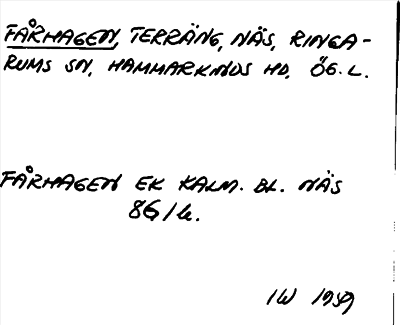 FÅRHAGEN, TERRÄNG, NÄS, RINGA-
RUMS SN, HAMMARKINDS HD, ÖG. L.
FÅRHAGEN EK KALM. BL. NÄS
86/4.
IW 1959